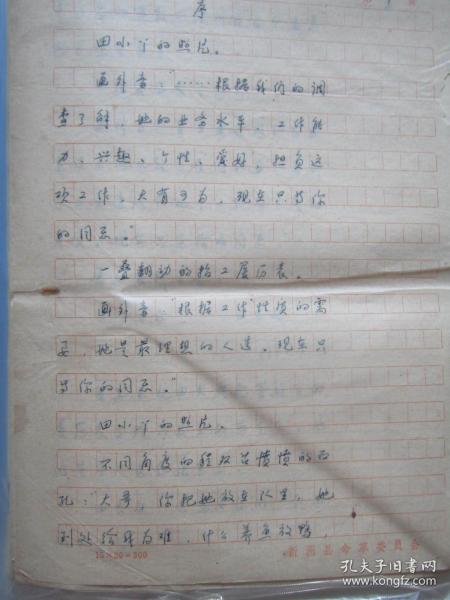 序
田小丫的照片。
画外音：“……根据我们的调
查了解，她的业务水平、工作能
力、兴趣、个性、爱好，担负这
项工作，大有可为，现在只等你
的同意。”
一叠翻动的招工履历表。
画外音：“根据工作性质的需
要，她是最理想的人选。现在只
等你的同意。”
田小丫的照片。
不同角度的程双谷愤愤的面
孔：“大哥，你把她放在队里，她
到处给我为难，什么养鱼放鸭，
15×20=300
县革命委员会
孔夫子旧书网